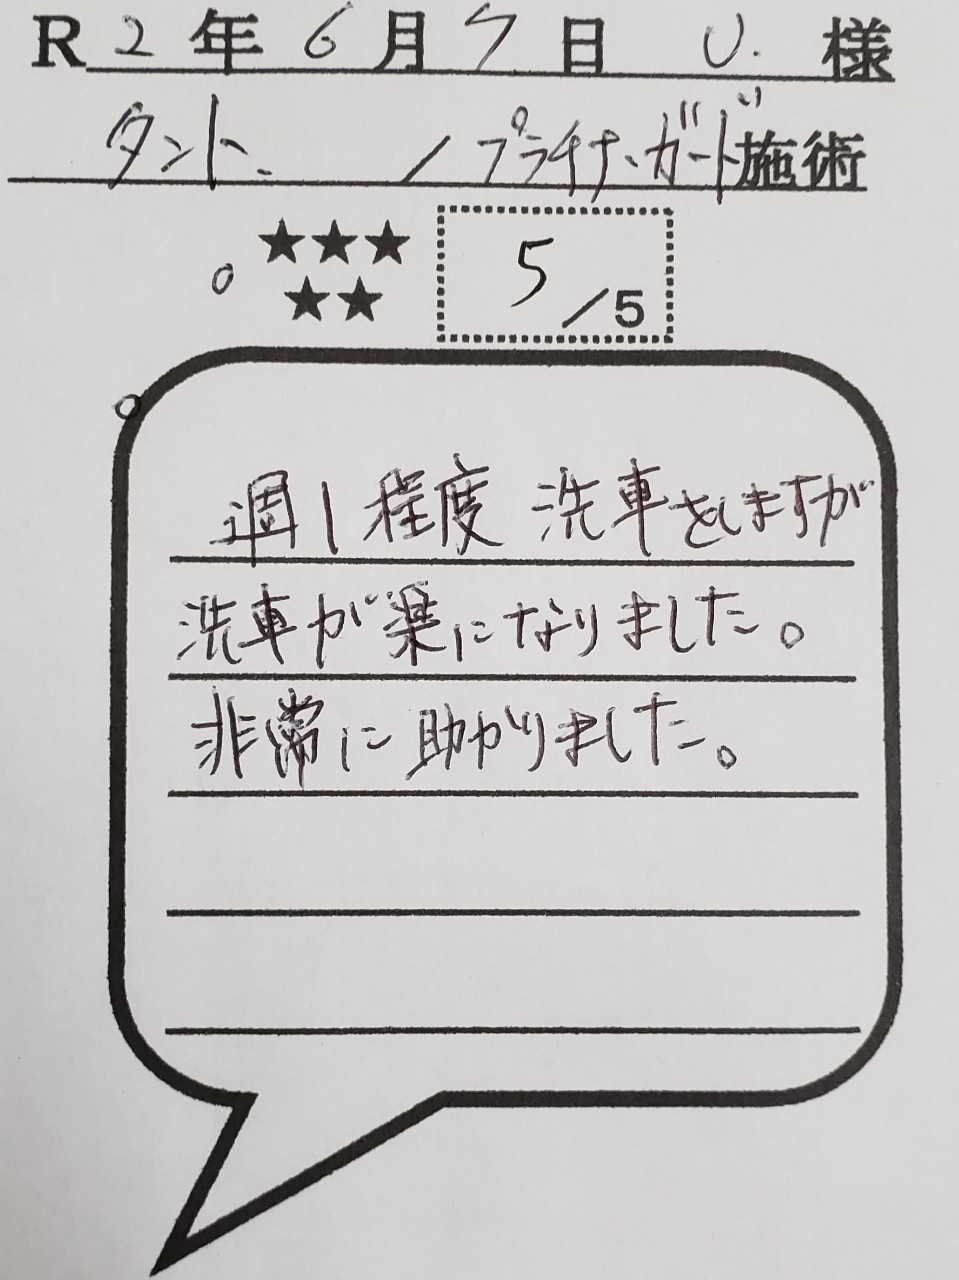 R2年6月7日 U.様
タント. /プラチナ・ガード施術
★★★
★★
5/5
週1程度 洗車をしますが
洗車が楽になりました。
非常に助かりました。